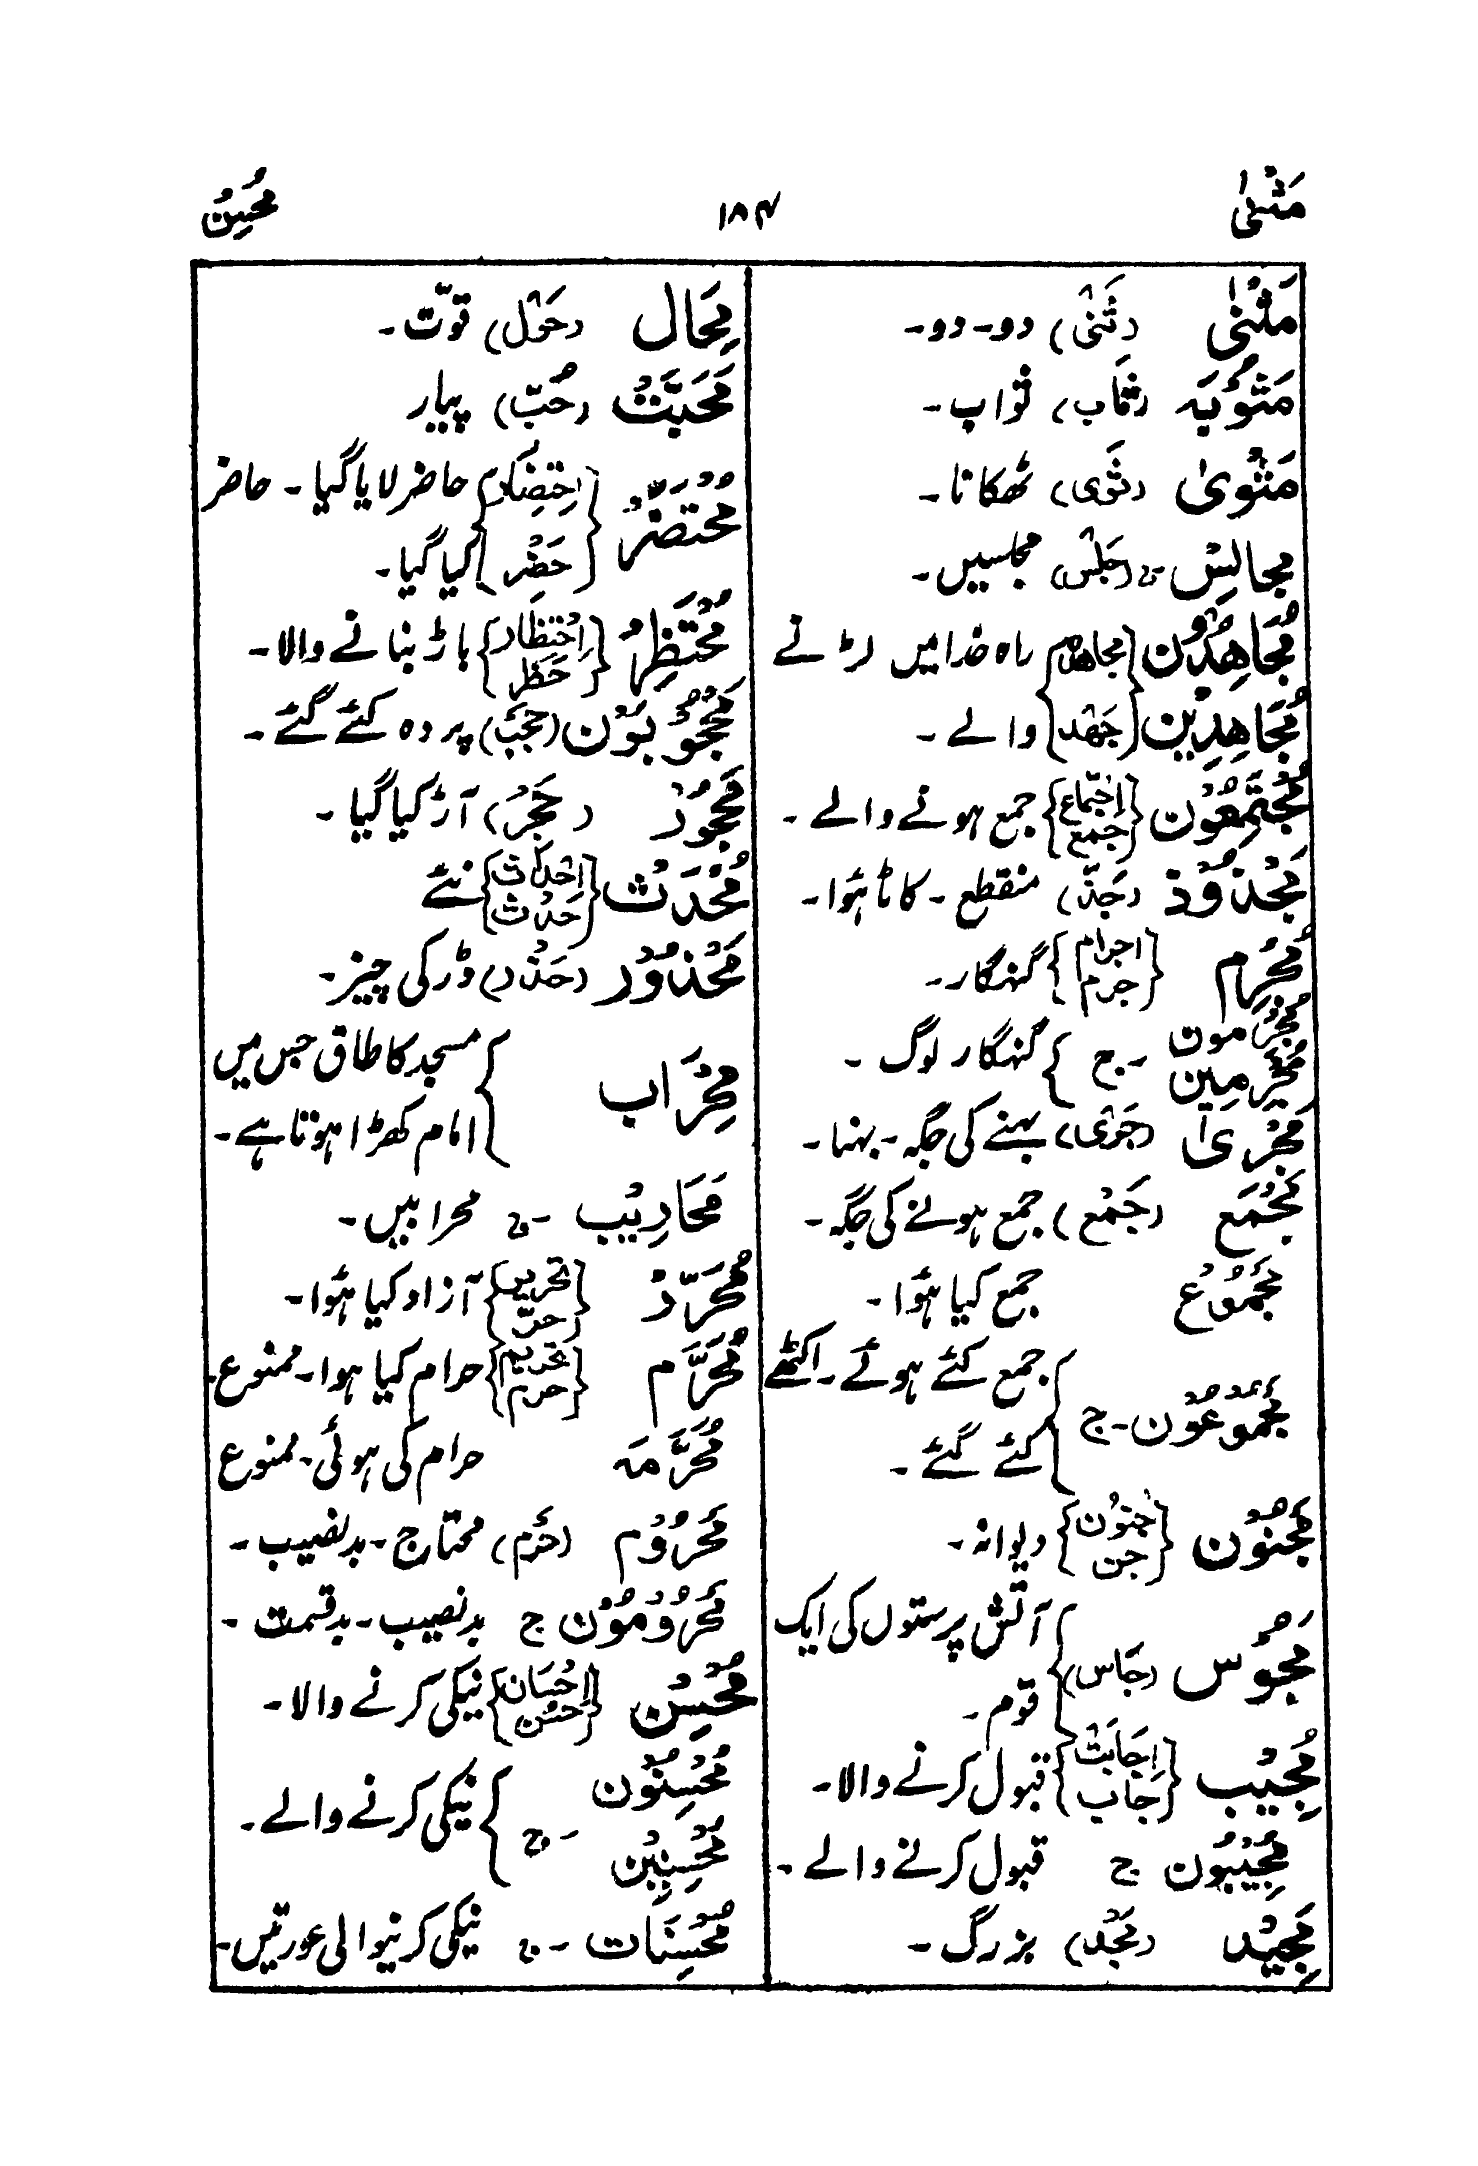 مَثْنٰی ۱۸۴ مُحْسِنُ
مَثْنٰی (ثَنٰی) دو۔ دو۔
مَثُوْبَہ (ثاب) ثواب۔
مَثْویٰ (ثَوٰی) ٹھکانا۔
مجالِسْ۔ ج (جَلَسْ) مجلسیں۔
مُجَاھِدُوْن {مجاھدہ راہ خدا میں لڑنے
مُجَاھِدِیْن {جَھْد} والے۔
مُجْتَمِعُوْن {اِجْتِمَاع جمع} جمع ہونے والے۔
مَجْذُوْذ (جَذّ) منقطع۔ کاٹا ہؤا۔
مُجْرِم {اجرام جرم} گنہگار۔
مُجْرِمُوْن
مُجْرِمِیْن ۔ ج } گنہگار لوگ۔
مَجْرٰی (جَرٰی) بہنے کی جگہ۔ بہنا۔
مَجْمَع (جَمْع) جمع ہونے کی جگہ۔
مَجْمُوْع جمع کیا ہؤا۔
مَجْمُوْعُوْن۔ ج } جمع کئے ہوئے۔ اکٹھے
کئے گئے۔
مَجْنُوْن {جُنُوْن جن} دیوانہ۔
مَجُوْس (جَاس) } آتش پرستوں کی ایک
قوم۔
مُجِیْب {اِجَابَتْ جاب} قبول کرنے والا۔
مُجِیْبُوْن ج قبول کرنے والے۔
مَجِیْد (مَجْد) بزرگ۔
مِحَال (حَوْل) قوّت۔
مَحَبَّتْ (حُبّ) پیار
مُحْتَضَرْ {اِحْتِضَار حاضر لایا گیا۔ حاضر
حَضَر} کیا گیا۔
مُحْتَظِرْ {اِحْتِظَار حَظَر} باڑ بنانے والا۔
مَحْجُوْبُوْن (حَجَبْ) پردہ کئے گئے۔
مَحْجُوْر (حَجَرْ) آڑ کیا گیا۔
مُحْدَثْ {اِحْدَاث حَدَث} نئے
مَحْذُوْر (حَذَر) ڈر کی چیز۔
مِحْرَاب } مسجد کا طاق جس میں
امام کھڑا ہوتا ہے۔
مَحَارِیْب ۔ ج محرابیں۔
مُحَرَّرْ {تحریر حرّ} آزاد کیا ہؤا۔
مُحَرَّم {تحریم حرم} حرام کیا ہوا۔ ممنوع۔
مُحَرَّمَہ حرام کی ہوئی۔ ممنوع
مَحْرُوْم (حَرَم) محتاج۔ بدنصیب۔
مَحْرُوْمُوْن ج بدنصیب۔ بدقسمت۔
مُحْسِنْ {اِحْسَان حَسُن} نیکی کرنے والا۔
مُحْسِنُوْن
مُحْسِنِیْن ۔ ج } نیکی کرنے والے۔
مُحْسِنَات ۔ ج نیکی کرنیوالی عورتیں۔